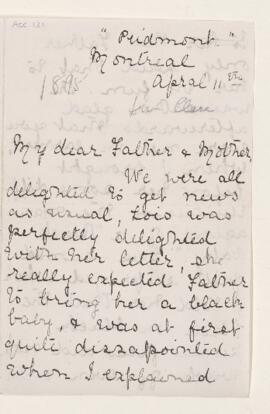 "Piedmont"
Montreal
April 11th
1895
My dear Father & Mother,
We were all
delighted to get news
as usual, Lois was
perfectly delighted
with her letter, she
really expected Father
to bring her a black
baby, & was at first
quite dissapointed
when I explained